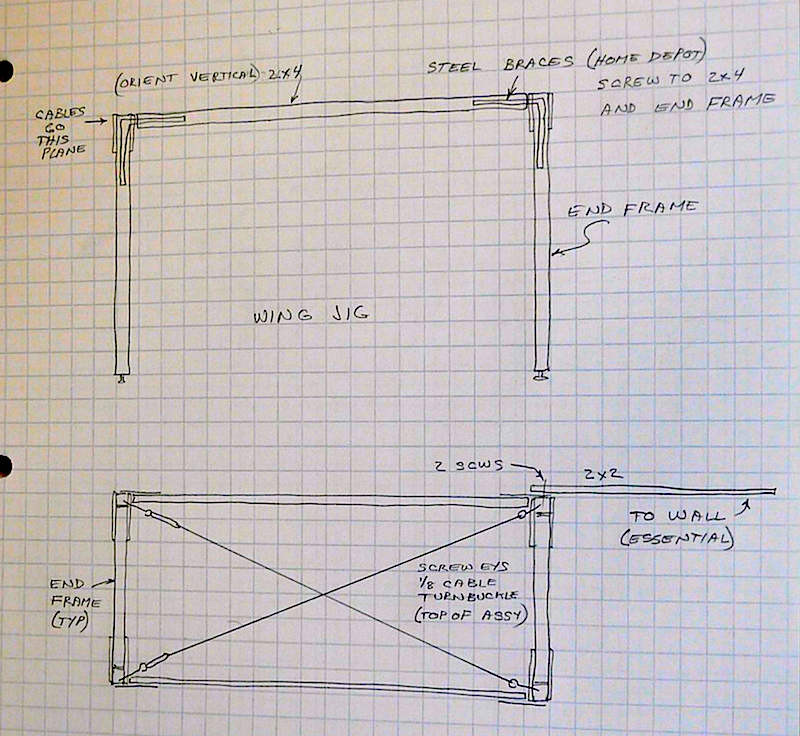 (ORIENT VERTICAL) 2x4
STEEL BRACES (HOME DEPOT)
SCREW TO 2x4
AND END FRAME
CABLES
GO
THIS
PLANE
END FRAME
WING JIG
2 SCWS
2x2
TO WALL
(ESSENTIAL)
SCREW EYS
1/8 CABLE
TURNBUCKLE
(TOP OF ASSY)
END
FRAME
(TYP)